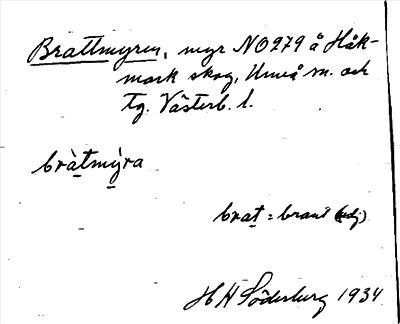 Brattmyren, myr NO279 å Håk-
mark skog, Umeå sn. och
tg. Västerb. l.
bràtmỳra
brat = brant (adj)
H H Söderberg 1934